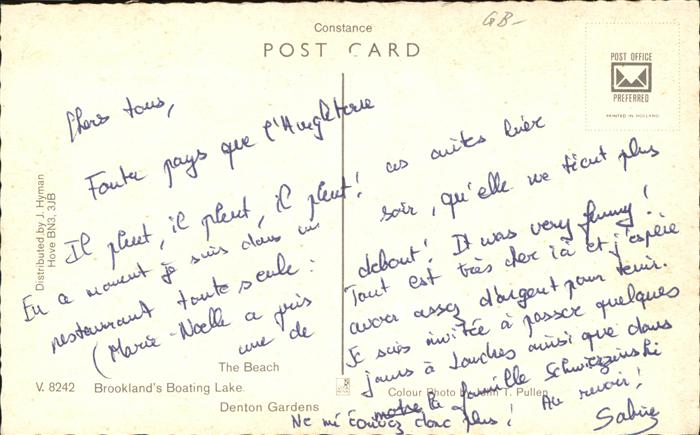 GB-
Constance
POST CARD
POST OFFICE
PREFERRED
PRINTED IN HOLLAND
Distributed by J. Hyman
Hove BN3, 3JB
Chers tous,
pays que l'Angleterre
Il pleut, il pleut, il pleut!
En ce moment je suis dans un
restaurant toute seule :
(Marie-Noelle a pris
une de
ces cuites hier
soir, qu'elle ne tient plus
debout! It was very funny!
Tout est très cher ici et j'espère
avoir assez d'argent pour tenir.
Je suis invitée à passer quelques
jours à Londres ainsi que dans
la famille
Ne m'écrivez donc plus! Au revoir!
Sabine
The Beach
V. 8242 Brookland's Boating Lake.
Denton Gardens
Colour Photo T. Pullen